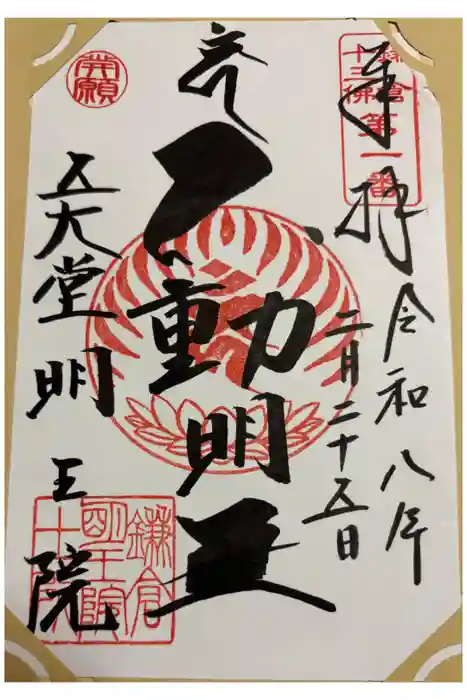 奉拝
鎌倉
十三佛
第一番
令和八年
二月二十五日
不動明王
開願
五大堂明王院
鎌倉
明王院